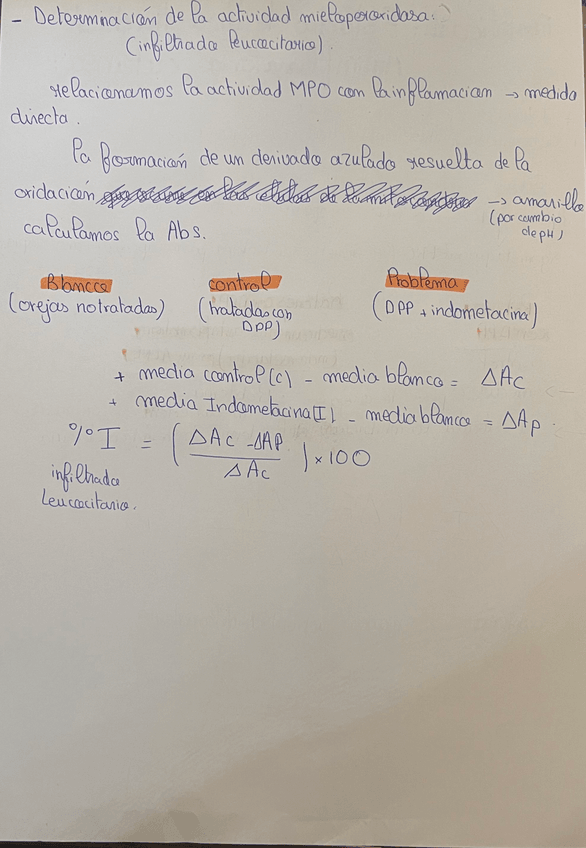 - Determinación de la actividad mieloperoxidasa:
(infiltrado leucocitario).
relacionamos la actividad MPO con la inflamación → medida
directa.
la formación de un derivado azulado resuelta de la
oxidación → amarillo
(por cambio
de pH)
calculamos la Abs.
Blanco control Problema
(orejas no tratadas) (tratadas con DPP) (DPP + indometacina)
+ media control (c) - media blanco = ΔAc
+ media Indometacina (I) - media blanco = ΔAp.
%I = (ΔAc - ΔAP / ΔAc) x 100
infiltrado
leucocitario.